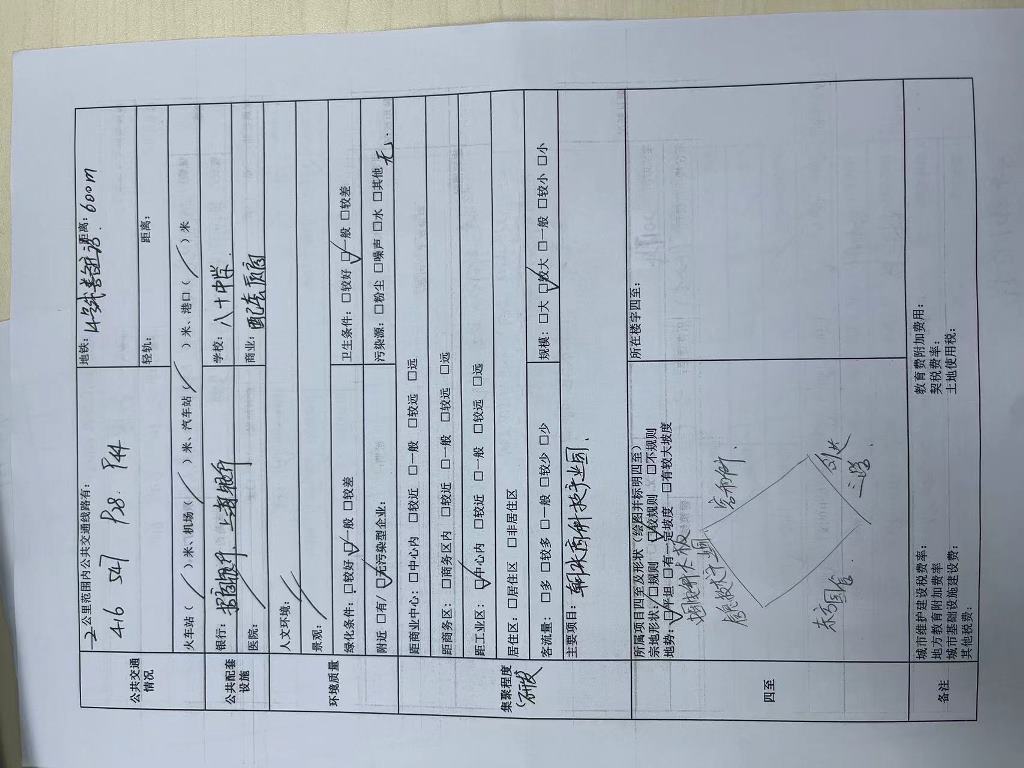 公共交通情况
2 公里范围内公共交通线路有:
416 547 P28. P44
地铁: 14号线善各庄站. 距离: 600m
轻轨: 距离:
火车站( / )米、机场( / )米、汽车站( / )米、港口( / )米
公共配套设施
银行:
学校: 八十中学.
医院:
商业: 配套底商
环境质量
人文环境:
景观:
绿化条件: □较好 ☑一般 □较差
卫生条件: □较好 ☑一般 □较差
附近 □有/ ☑无污染型企业:
污染源: □粉尘 □噪声 □水 □其他 无.
集聚程度
(研发)
距商业中心: □中心内 □较近 □一般 □较远 □远
距商务区: □商务区内 □较近 □一般 □较远 □远
距工业区: ☑中心内 □较近 □一般 □较远 □远
居住区: □居住区 □非居住区
客流量: □多 □较多 □一般 □较少 □少
规模: □大 ☑较大 □一般 □较小 □小
主要项目: 朝来高科技产业园.
四至
所属项目四至及形状(绘图并标明四至)
所在楼宇四至:
宗地形状: □规则 ☑较规则 □不规则
地势: ☑平坦 □有一定坡度 □有较大坡度
备注
城市维护建设税费率:
教育费附加费用:
地方教育附加费率:
契税费率:
城市基础设施建设费:
土地使用税:
其他税费: